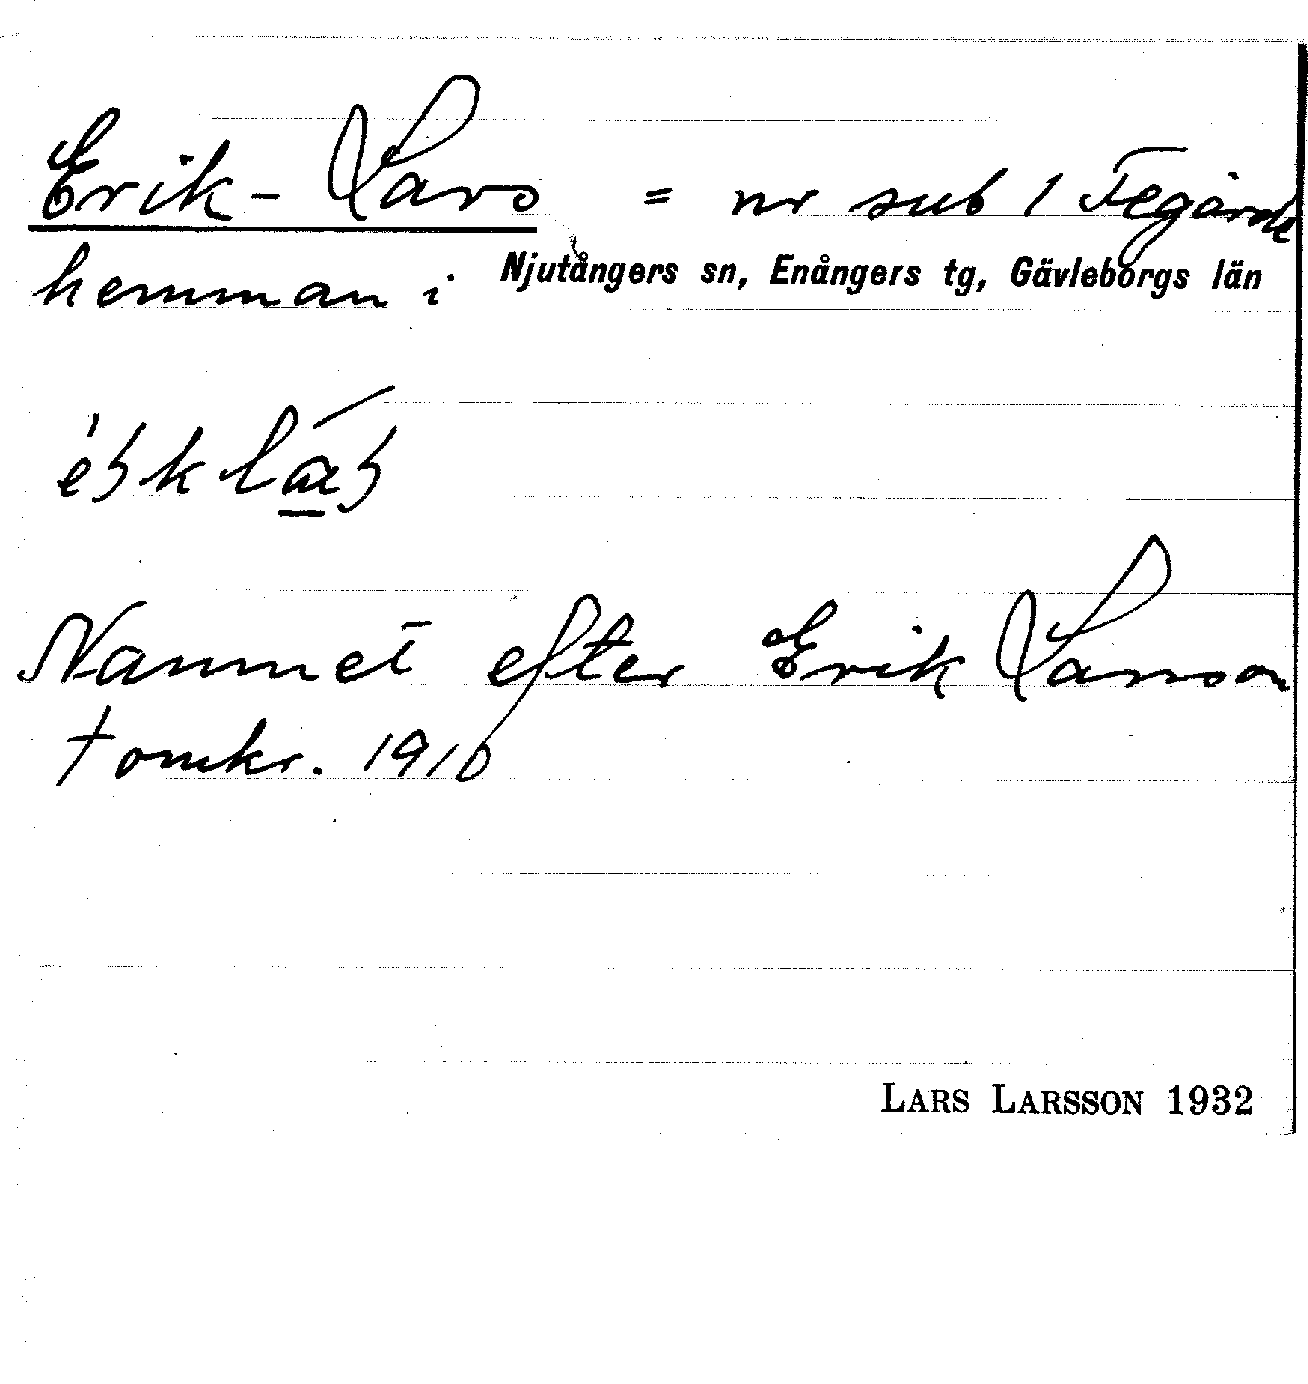 Erik-Lars = nr sub 1 Tegårde
hemman i Njutångers sn, Enångers tg, Gävleborgs län
Namnet efter Erik Larsson
† omkr. 1910
LARS LARSSON 1932